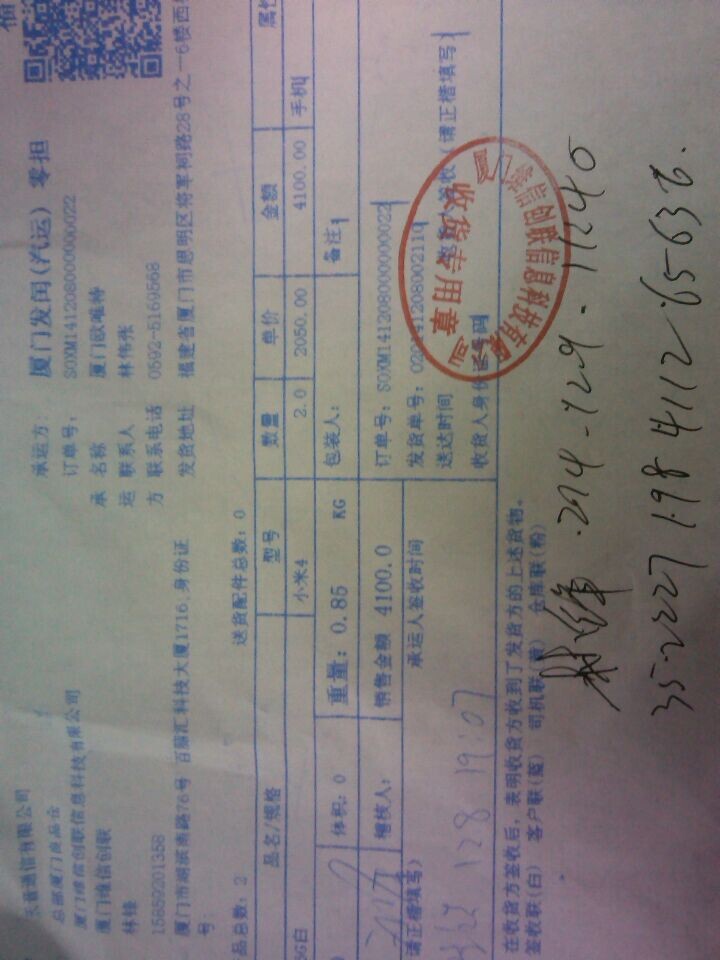 福
厦门发闵(汽运) 零担
天音通信有限公司 承运方:
总部厦门良品仓 订单号: SOXM1412080000000022
厦门唯信创联信息科技有限公司 承 名称 厦门欧唯特
厦门唯信创联 运 联系人 林伟张
林锋 方 联系电话 0592-5169568
15859201358 发货地址 福建省厦门市思明区将军祠路28号之一6楼西
厦门市湖滨南路76号 百脑汇科技大厦1716,身份证
号:
品总数: 2 送货配件总数: 0
品名/规格 型号 数量 单价 金额 属性
G白 小米4 2.0 2050.00 4100.00 手机
体积: 0 重量: 0.85 KG 包装人: 备注:
稽核人: 销售金额 4100.0 订单号: SOXM1412080000000022
请正楷填写) 承运人签收时间 发货单号:
128 19:07 送达时间 (请正楷填写)
收货人身份证号码
收货专用章
创联信息科技有
在收货方签收后,表明收货方收到了发货方的上述货物。
签收联(白) 客户联(蓝) 司机联(黄) 仓库联(粉)